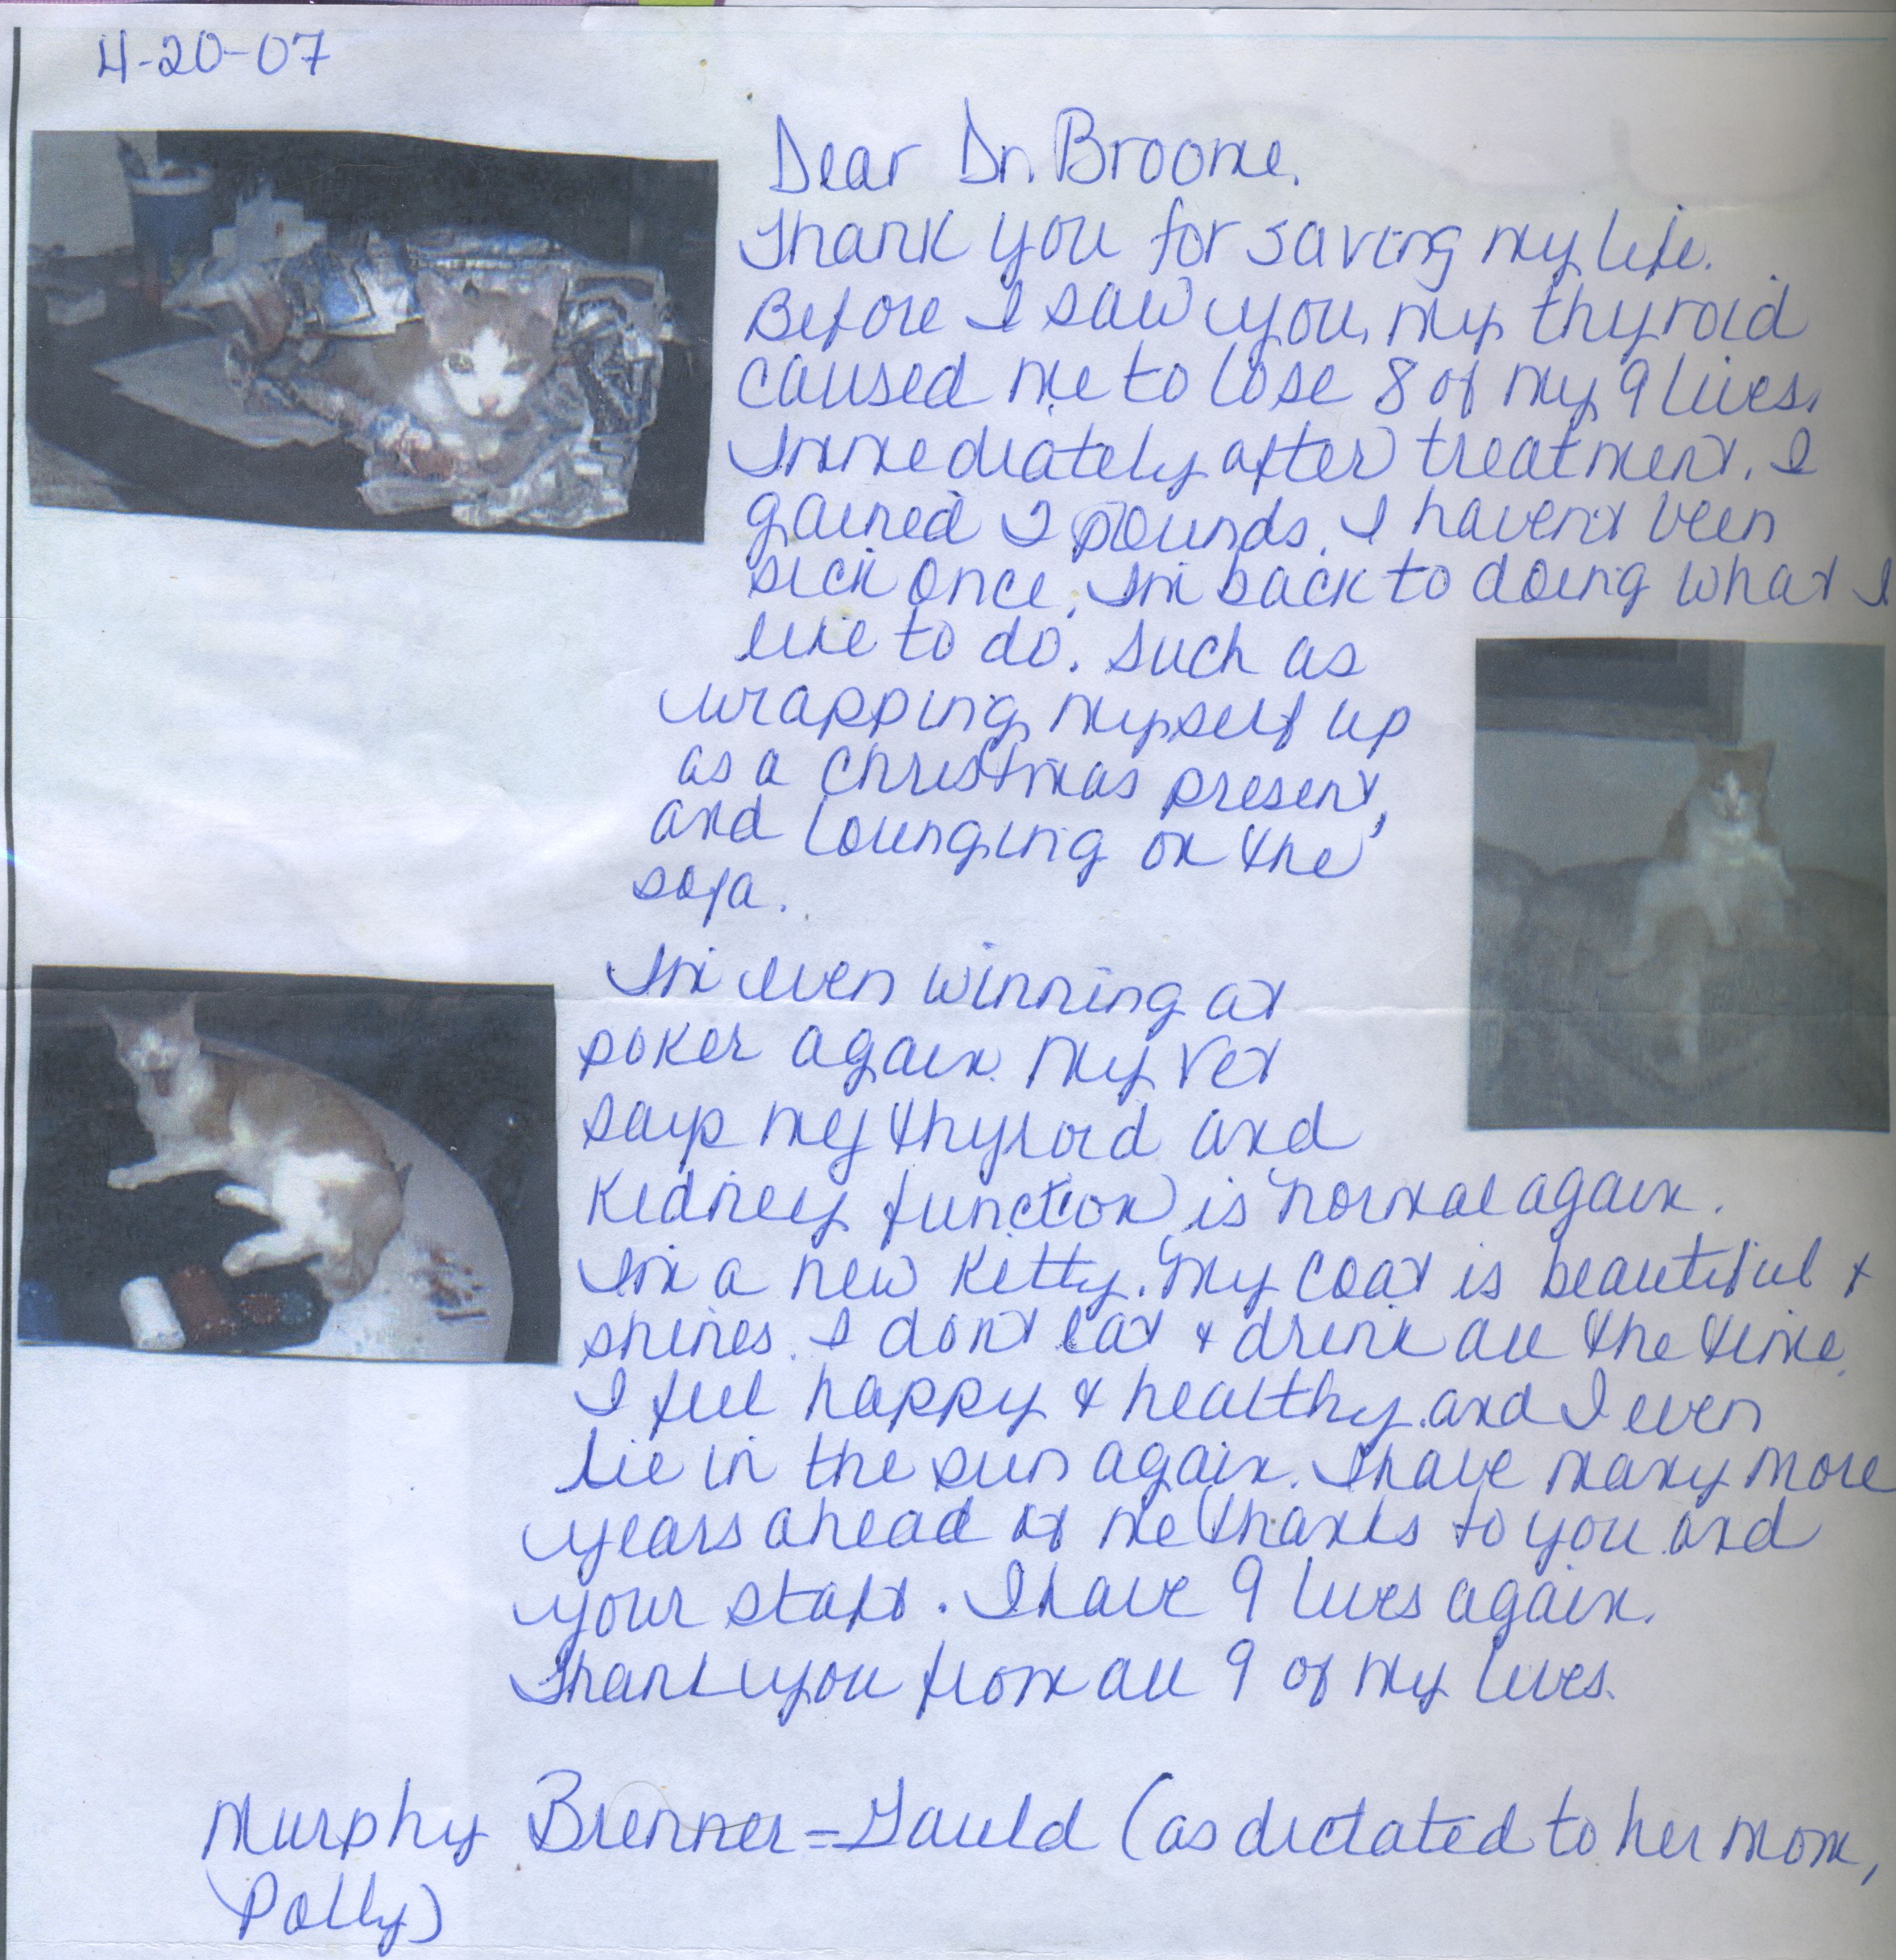 4-20-07
Dear Dr. Broome,
Thank you for saving my life.
Before I saw you, my thyroid
caused me to lose 8 of my 9 lives.
Immediately after treatment, I
gained 2 pounds. I haven't been
sick once. I'm back to doing what I
like to do. Such as
wrapping myself up
as a christmas present,
and lounging on the
sofa.
I'm even winning at
poker again. My vet
says my thyroid and
kidney function is normal again.
I'm a new kitty. My coat is beautiful +
shines. I don't eat + drink all the time.
I feel happy + healthy and I even
lie in the sun again. I have many more
years ahead of me thanks to you and
your staff. I have 9 lives again.
Thank you from all 9 of my lives.
Murphy Brenner-Gauld (as dictated to her mom,
Polly)